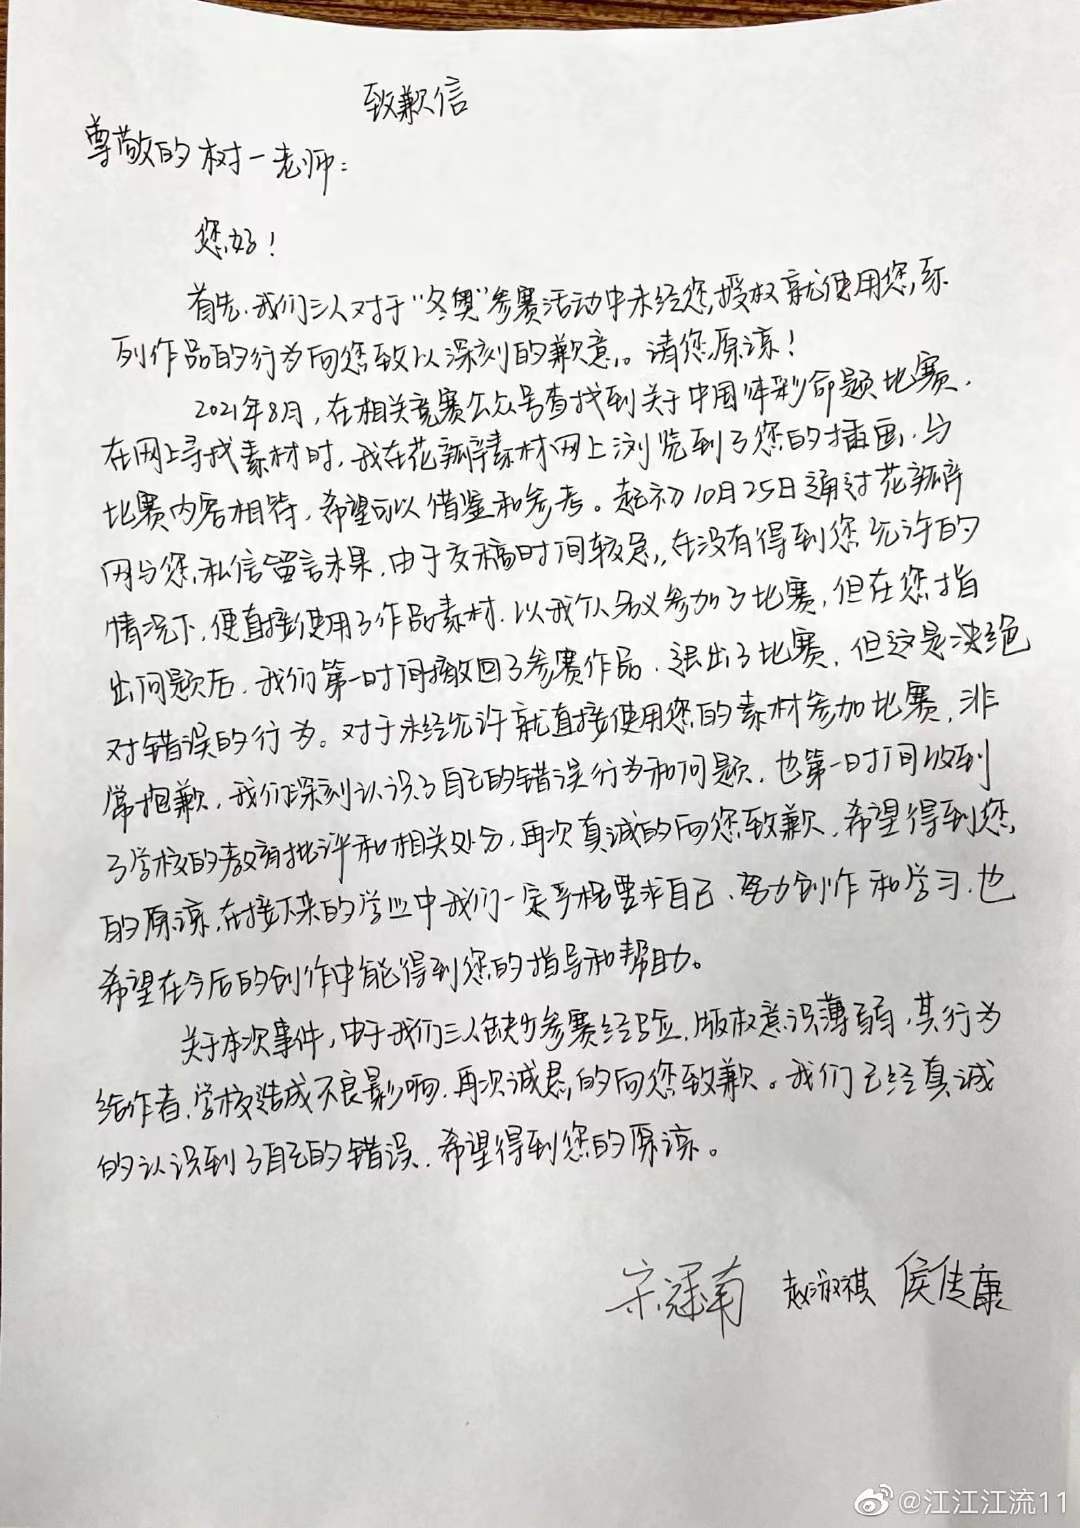 致歉信
尊敬的树一老师：
您好！
首先，我们三人对于“冬奥”参赛活动中未经您授权就使用您系
列作品的行为向您致以深刻的歉意。请您原谅！
2021年8月，在相关竞赛公众号查找到关于中国体彩命题比赛，
在网上寻找素材时，我在花瓣素材网上浏览到了您的插画，与
比赛内容相符，希望可以借鉴和参考。起初10月25日通过花瓣
网与您私信留言未果，由于交稿时间较急，在没有得到您允许的
情况下，便直接使用了作品素材，以我个人名义参加了比赛，但在您指
出问题后，我们第一时间撤回了参赛作品，退出了比赛，但这是决绝
对错误的行为。对于未经允许就直接使用您的素材参加比赛，非
常抱歉，我们深刻认识了自己的错误行为和问题，也第一时间收到
了学校的教育批评和相关处分，再次真诚的向您致歉，希望得到您
的原谅，在接下来的学业中我们一定严格要求自己，努力创作和学习，也
希望在今后的创作中能得到您的指导和帮助。
关于本次事件，由于我们三人缺少参赛经验，版权意识薄弱，其行为
给作者、学校造成不良影响，再次诚恳的向您致歉。我们已经真诚
的认识到了自己的错误，希望得到您的原谅。
宋冠南 赵淑祺 侯传康
@江江江流11